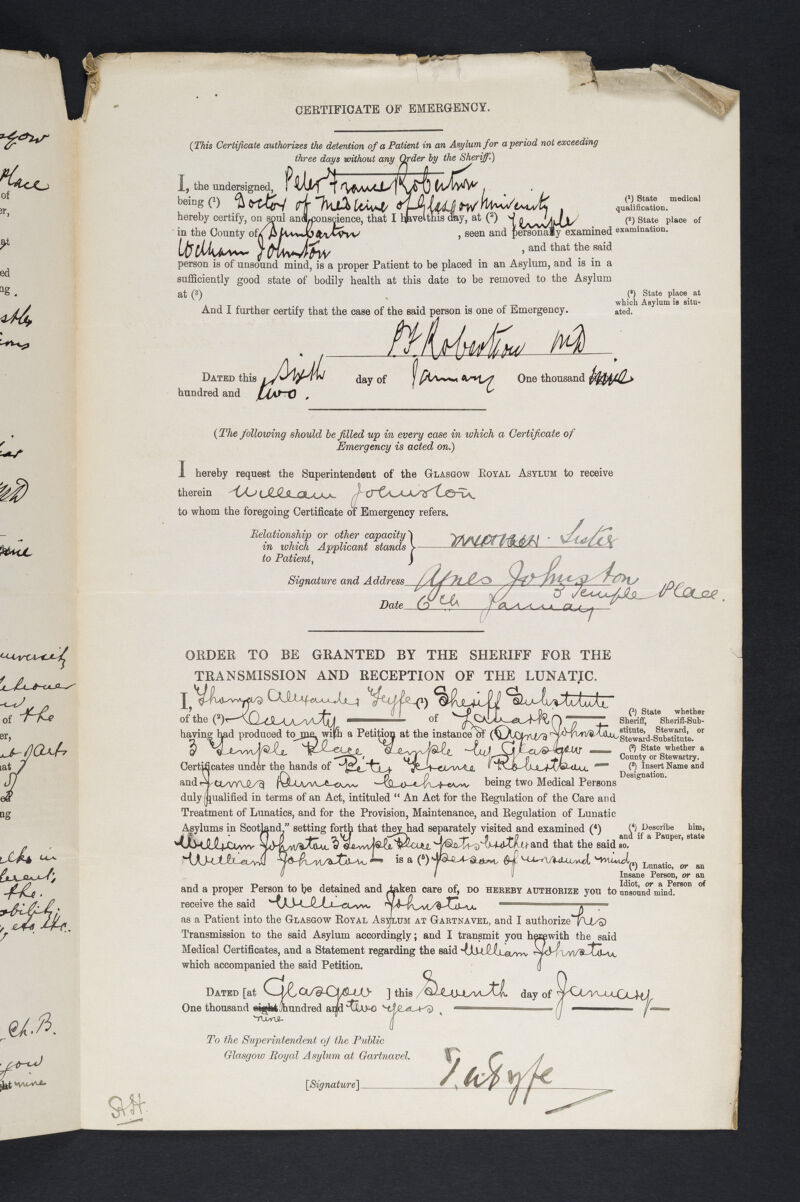 CERTIFICATE OF EMERGENCY.
(This Certificate authorizes the detention of a Patient in an Asylum for a period not exceeding
three days without any Order by the Sheriff.)
I, the undersigned, Peter France Robertson
being (¹) Doctor of Medicine of Glasgow University
(¹) State medical
qualification.
hereby certify, on soul and conscience, that I have this day, at (²) Temple
(²) State place of
examination.
in the County of Dumbarton , seen and personally examined
William Johnston , and that the said
person is of unsound mind, is a proper Patient to be placed in an Asylum, and is in a
sufficiently good state of bodily health at this date to be removed to the Asylum
at (³)
(³) State place at
which Asylum is situ-
ated.
And I further certify that the case of the said person is one of Emergency.
P.F. Robertson MD
DATED this Sixth day of January One thousand nine
hundred and two.
(The following should be filled up in every case in which a Certificate of
Emergency is acted on.)
I hereby request the Superintendent of the GLASGOW ROYAL ASYLUM to receive
therein William Johnston
to whom the foregoing Certificate of Emergency refers.
Relationship or other capacity
in which Applicant stands
to Patient,
Sister
Signature and Address Agnes Johnston
3 Temple Place.
Date 6th January
ORDER TO BE GRANTED BY THE SHERIFF FOR THE
TRANSMISSION AND RECEPTION OF THE LUNATIC.
I, Thomas Alexander Fyfe (¹) Sheriff Substitute
of the (²) County of Lanark
(¹) State whether
Sheriff, Sheriff-Sub-
stitute, Steward, or
Steward-Substitute.
having had produced to me, with a Petition at the instance of (³) Agnes Johnston
3 Temple Place Temple by Glasgow
(²) State whether a
County or Stewartry.
Certificates under the hands of Peter France Robertson
(³) Insert Name and
Designation.
and James Duncan Cochran being two Medical Persons
duly qualified in terms of an Act, intituled "An Act for the Regulation of the Care and
Treatment of Lunatics, and for the Provision, Maintenance, and Regulation of Lunatic
Asylums in Scotland," setting forth that they had separately visited and examined (⁴)
(⁴) Describe him,
and if a Pauper, state
so.
William Johnston 3 Temple Place petrs brother and that the said
William Johnston is a (⁵) person of unsound mind
(⁵) Lunatic, or an
Insane Person, or an
Idiot, or a Person of
unsound mind.
and a proper Person to be detained and taken care of, DO HEREBY AUTHORIZE you to
receive the said William Johnston
as a Patient into the GLASGOW ROYAL ASYLUM AT GARTNAVEL, and I authorize his
Transmission to the said Asylum accordingly; and I transmit you herewith the said
Medical Certificates, and a Statement regarding the said William Johnston
which accompanied the said Petition.
DATED [at Glasgow ] this Seventh day of January
One thousand eight hundred and two years.
nine
To the Superintendent of the Public
Glasgow Royal Asylum at Gartnavel.
[Signature] T.A. Fyfe